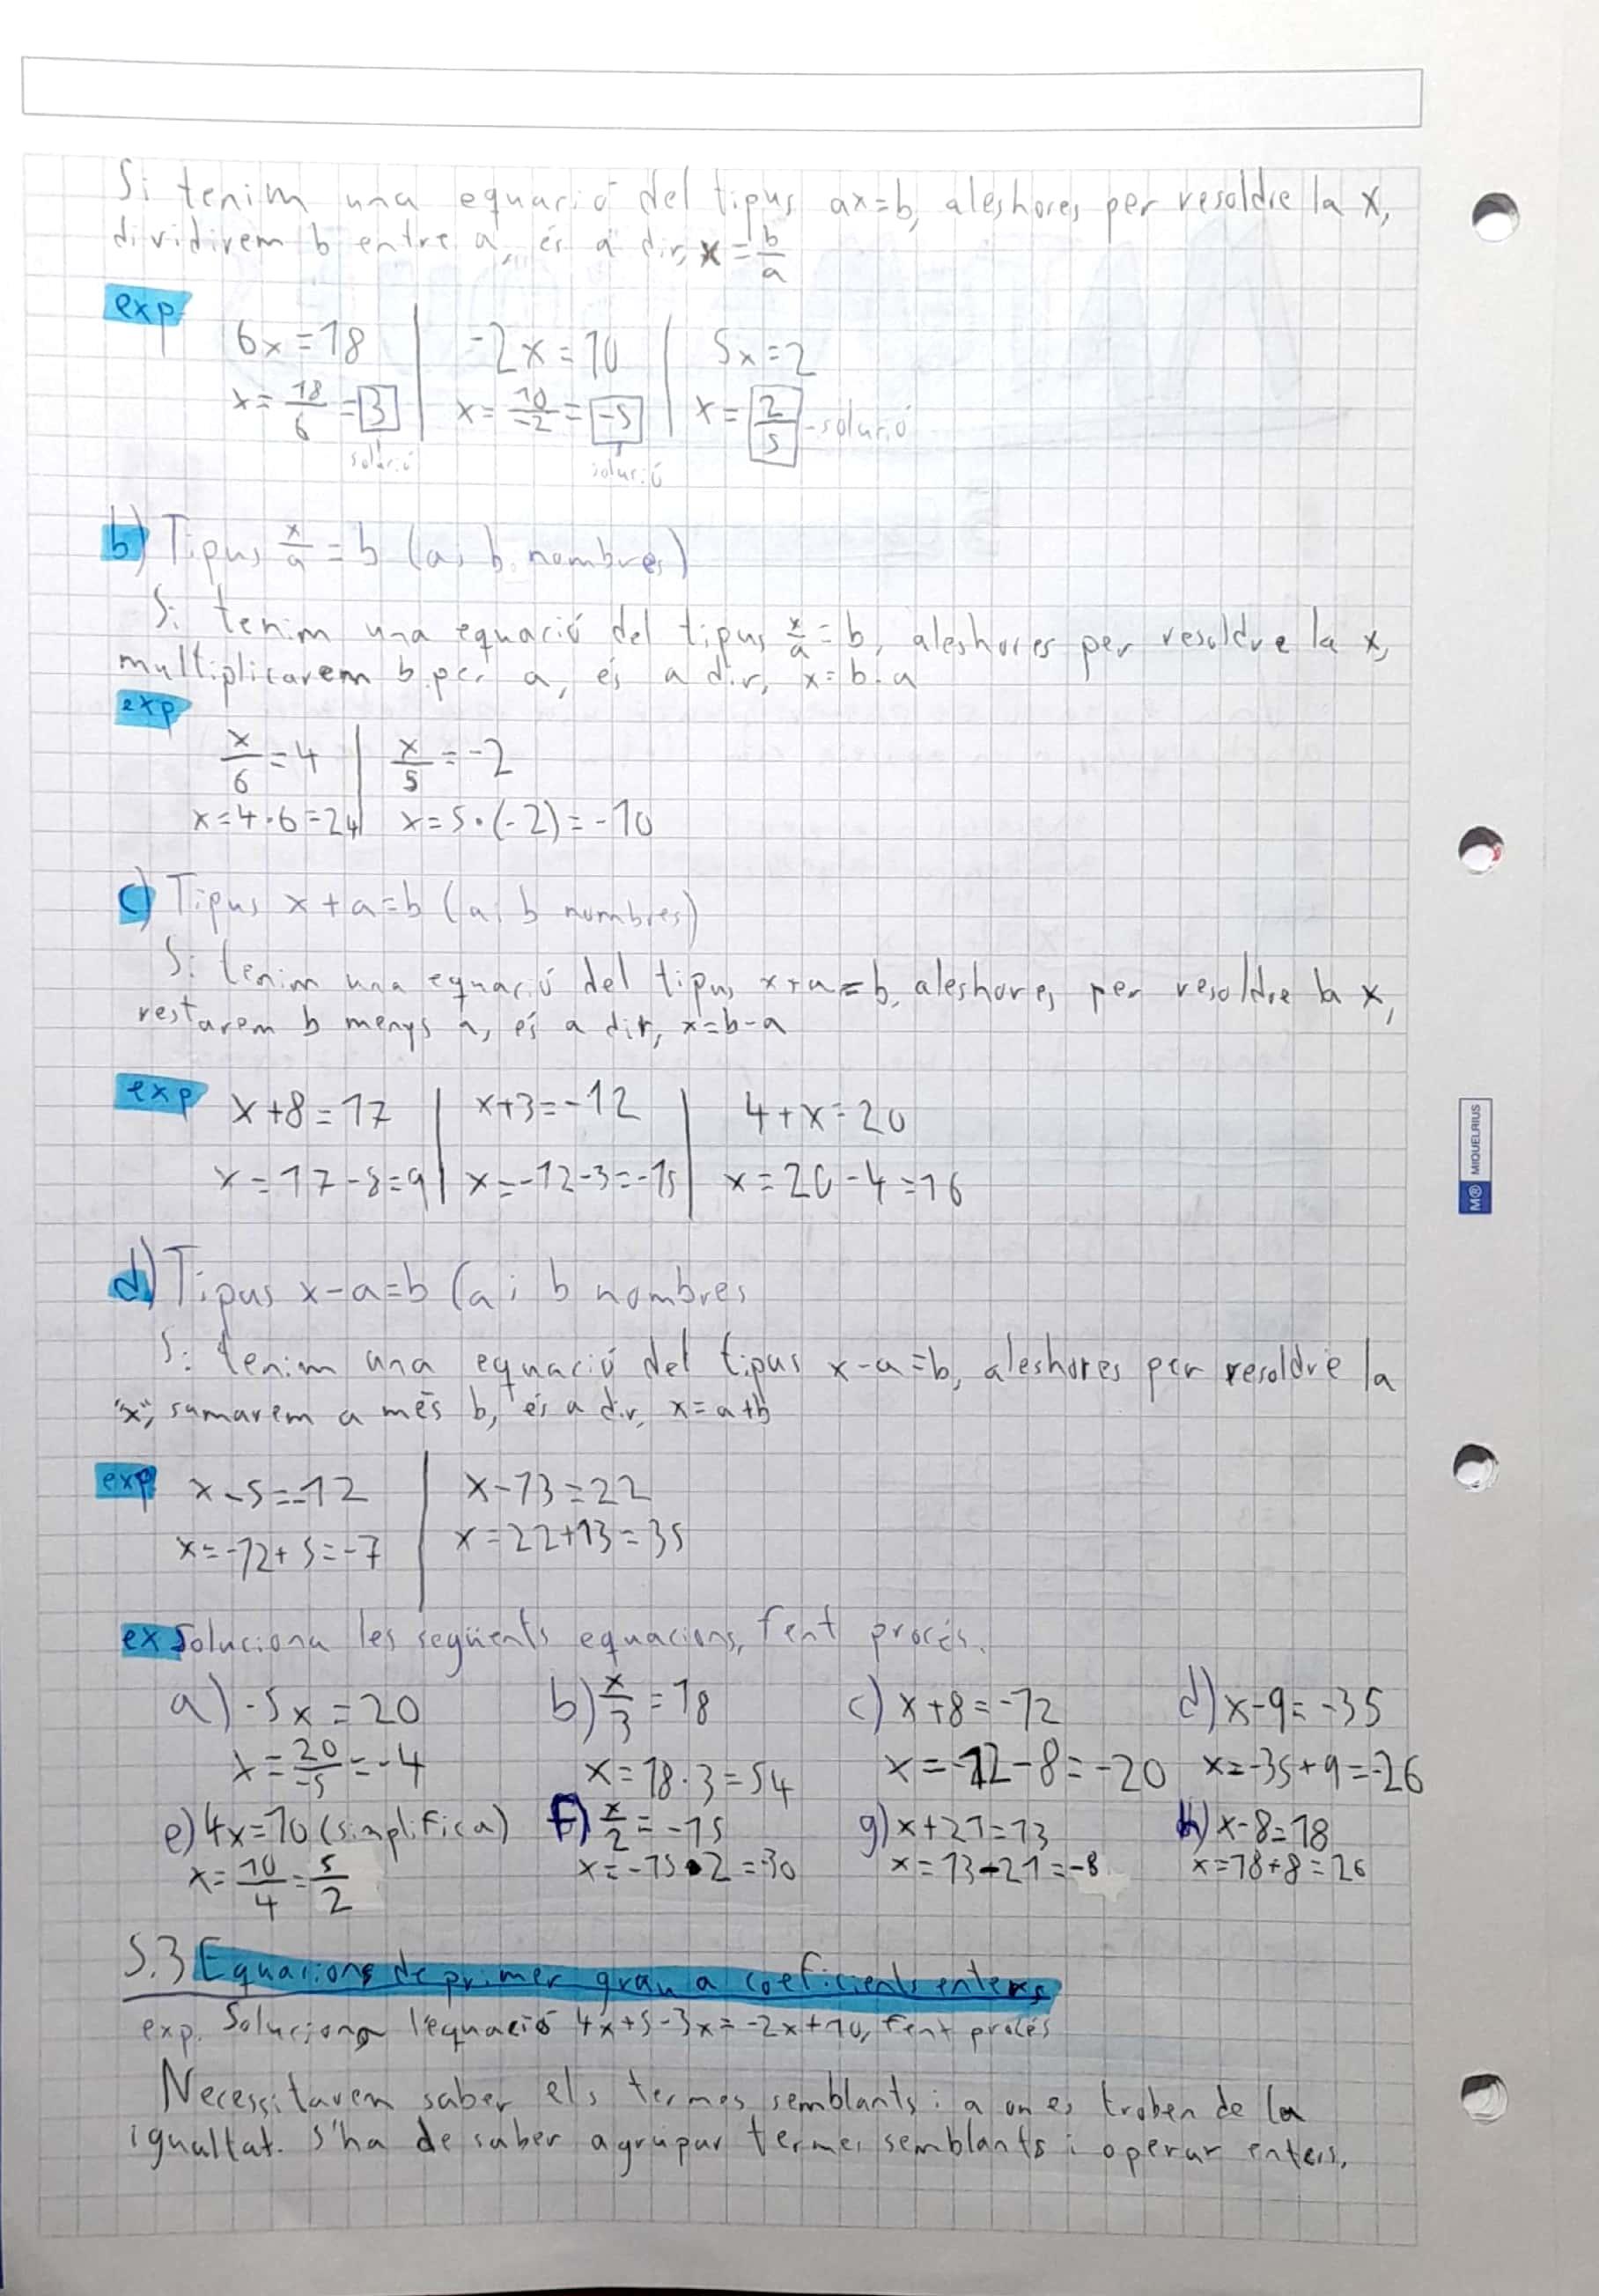 Si tenim una equació del tipus ax=b, aleshores per resoldre la x,
dividirem b entre a, és a dir, x = b/a
exp
6x=18 | -2x=10 | 5x=2
x = 18/6 = 3 | x = 10/-2 = -5 | x = 2/5 - solució
solució solució
b) Tipus x/a = b (a i b nombres)
Si tenim una equació del tipus x/a = b, aleshores per resoldre la x,
multiplicarem b per a, és a dir, x=b·a
exp
x/6 = 4 | x/5 = -2
x=4·6=24 | x=5·(-2)=-10
c) Tipus x+a=b (a i b nombres)
Si tenim una equació del tipus x+a=b, aleshores per resoldre la x,
restarem b menys a, és a dir, x=b-a
exp x+8=17 | x+3=-12 | 4+x=20
x=17-8=9 | x=-12-3=-15 | x=20-4=16
M® MIQUELRIUS
d) Tipus x-a=b (a i b nombres
Si tenim una equació del tipus x-a=b, aleshores per resoldre la
"x", sumarem a més b, és a dir, x=a+b
exp x-5=-12 | x-13=22
x=-12+5=-7 | x=22+13=35
ex Soluciona les següents equacions, fent procés.
a) -5x=20 b) x/3 = 18 c) x+8=-12 d) x-9=-35
x = 20/-5 = -4 x=18·3=54 x=-12-8=-20 x=-35+9=-26
e) 4x=10 (simplifica) f) x/2 = -15 g) x+21=13 h) x-8=18
x = 10/4 = 5/2 x=-15·2=-30 x=13-21=-8 x=18+8=26
5.3 Equacions de primer grau a coeficients enters
exp. Soluciona l'equació 4x+5-3x=-2x+10, fent procés
Necessitarem saber els termes semblants i a on es troben de la
igualtat. S'ha de saber agrupar termes semblants i operar enters.